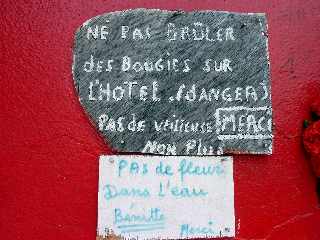 NE PAS BRÛLER
des BOUGiES SUR
L'HOTEL. (dANGER)
PAS dE VEiLLEUSE MERCi
NON PLUS
PAS de fleur
Dans L'eau
Bénitte
Merci